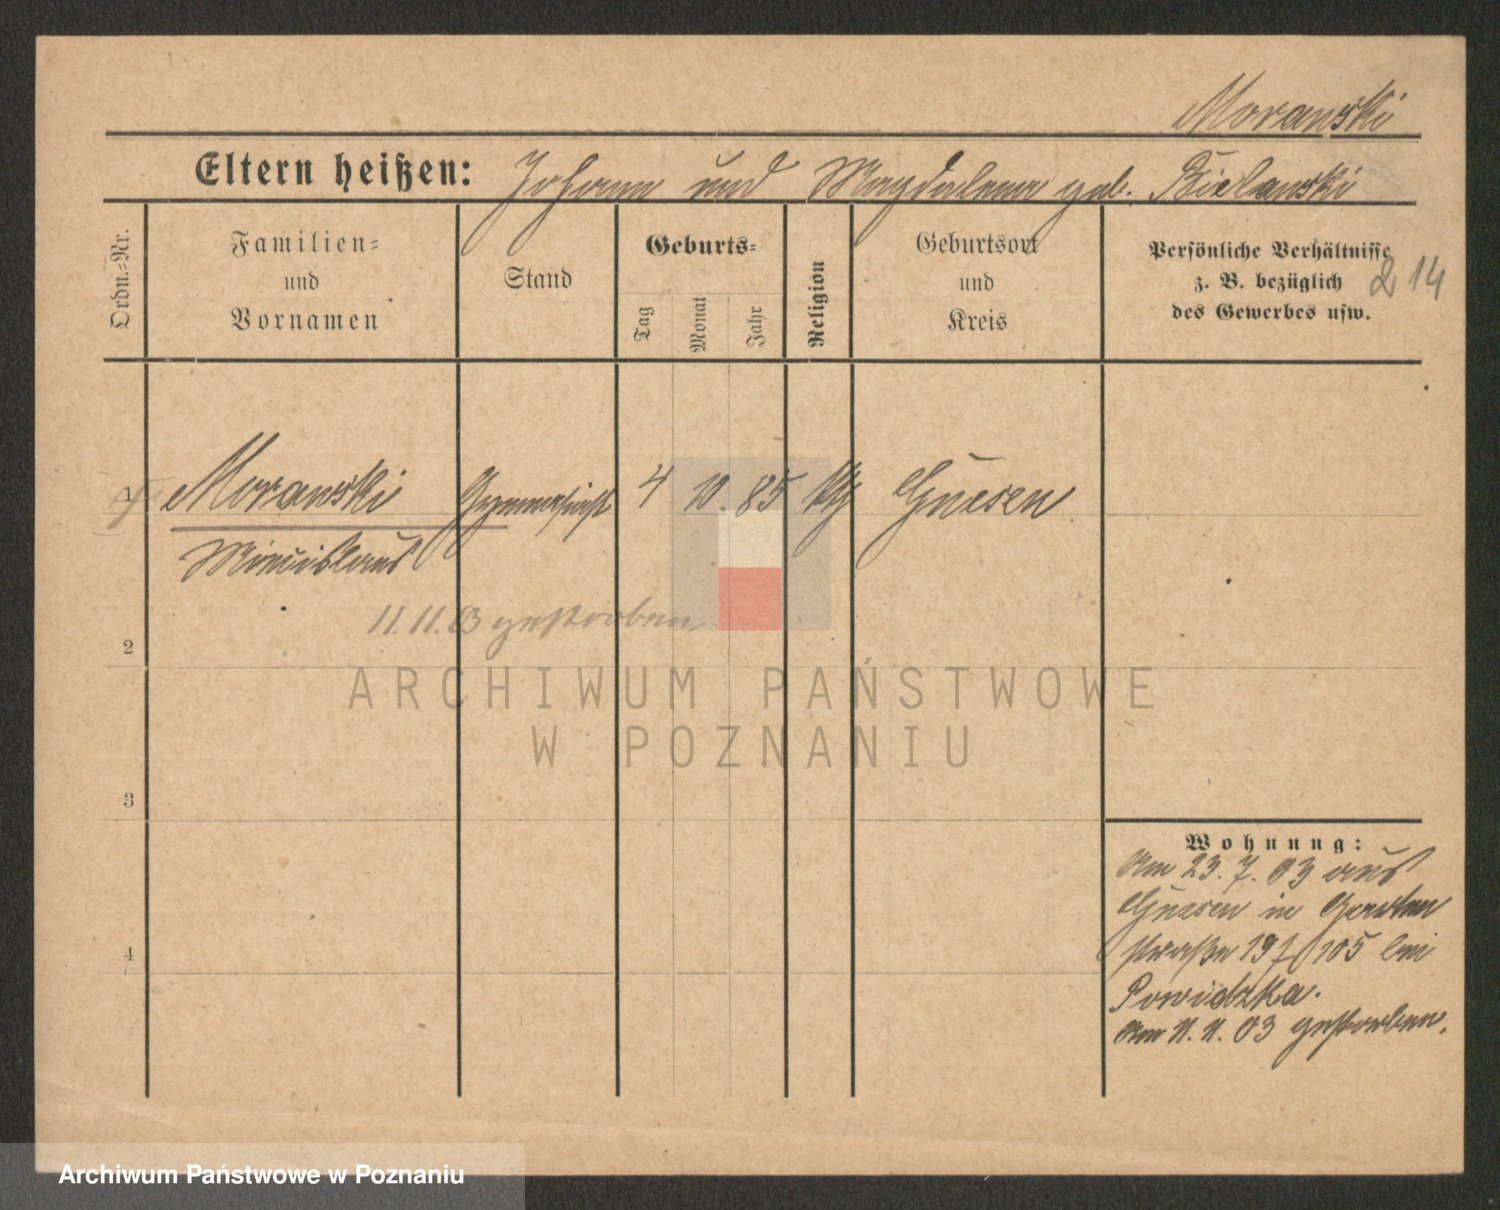 Moranski
Eltern heißen: Johann und Magdalena geb. Bielanski
Ordn.-Nr.
Familien-
und
Vornamen
Stand
Geburts-
Tag
Monat
Jahr
Religion
Geburtsort
und
Kreis
Persönliche Verhältnisse
z. B. bezüglich
des Gewerbes usw.
214
1
Moranski Gymnasiast 4 10. 85 kth Gnesen
Miecislaus
11. 11. 03 gestorben
2
ARCHIWUM PAŃSTWOWE
W POZNANIU
3
Wohnung:
Am 23. 7. 03 aus
Gnesen in Garten
straße 19 / 105 bei
Powidzka.
Am 11. 11. 03 gestorben.
4
Archiwum Państwowe w Poznaniu